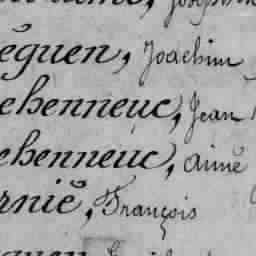 éguen, Joachim
ehenneuc, Jean
ehenneuc, aimé
rnié, François